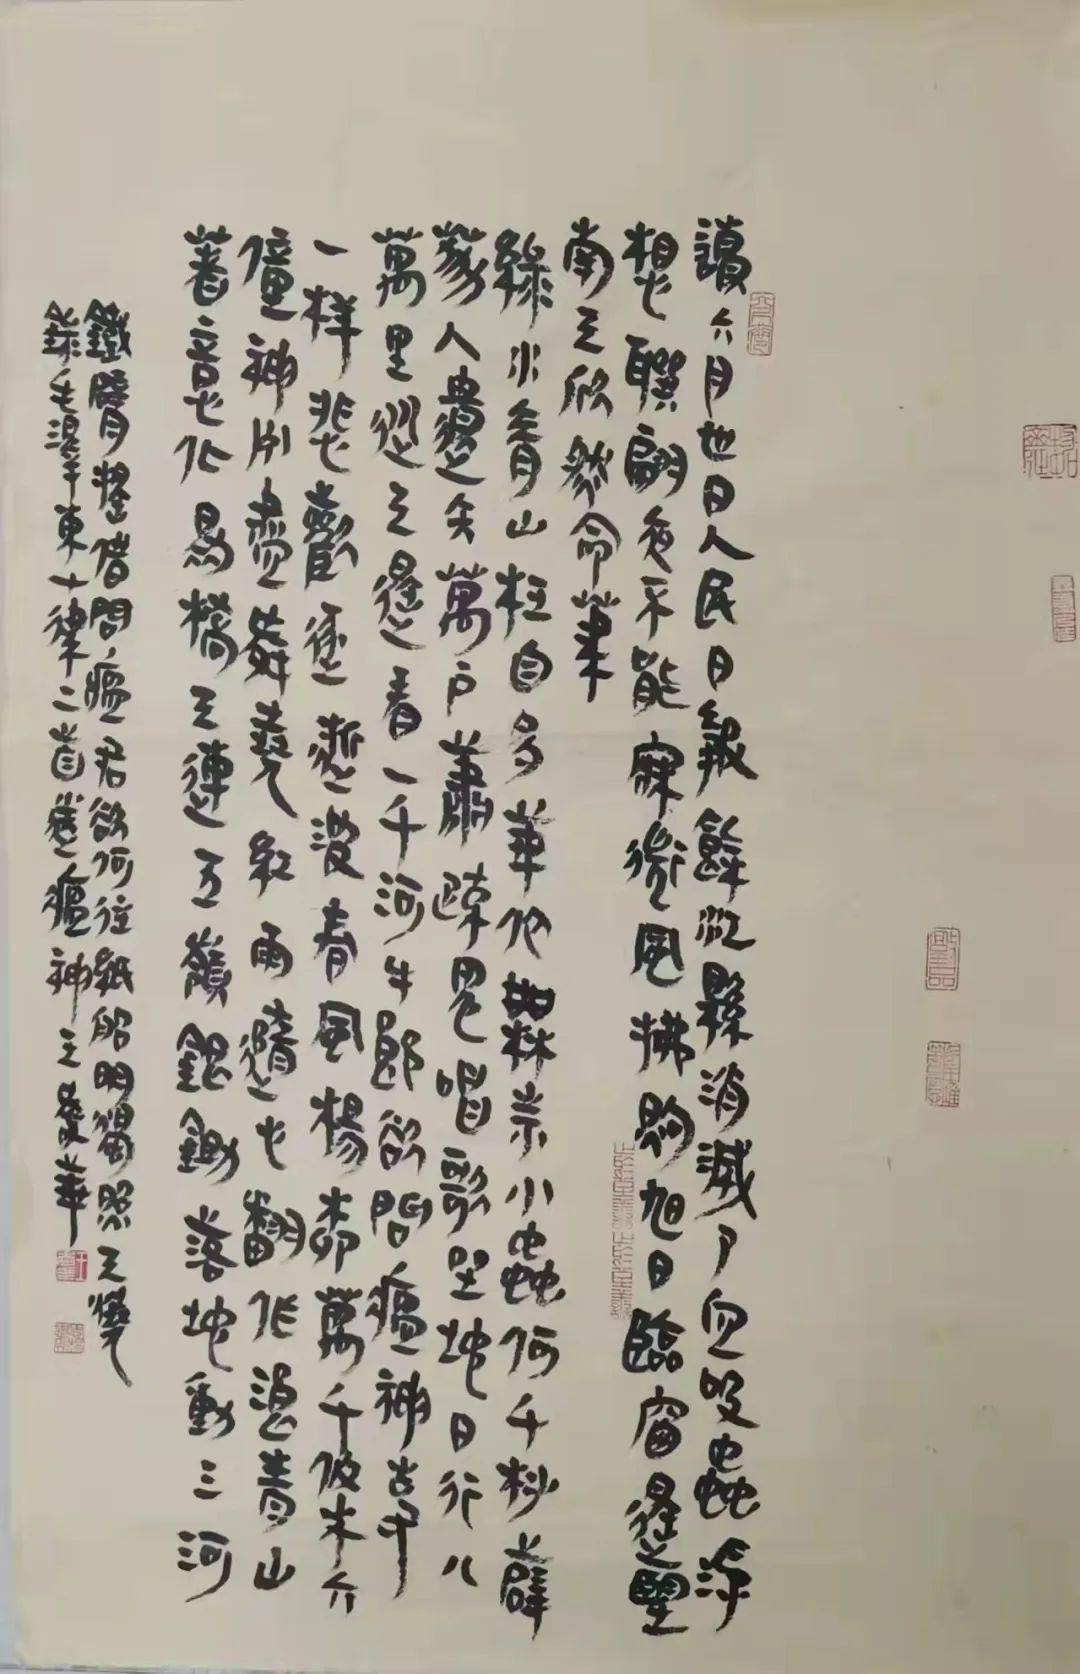 讀六月卅日人民日報餘江縣消滅了血吸蟲浮
想聯翩夜不能寐微風拂煦旭日臨窗遥望
南天欣然命筆
綠水青山枉自多華佗無奈小蟲何千村薜
荔人遺矢萬户蕭疏鬼唱歌坐地日行八
萬里巡天遥看一千河牛郎欲問瘟神事
一样悲歡逐逝波春風楊柳萬千條六
億神州盡舜堯紅雨隨心翻作浪青山
著意化為橋天連五嶺銀鋤落地動三河
鐵臂摇借問瘟君欲何往紙船明燭照天燒
錄毛澤東七律二首送瘟神王愛華